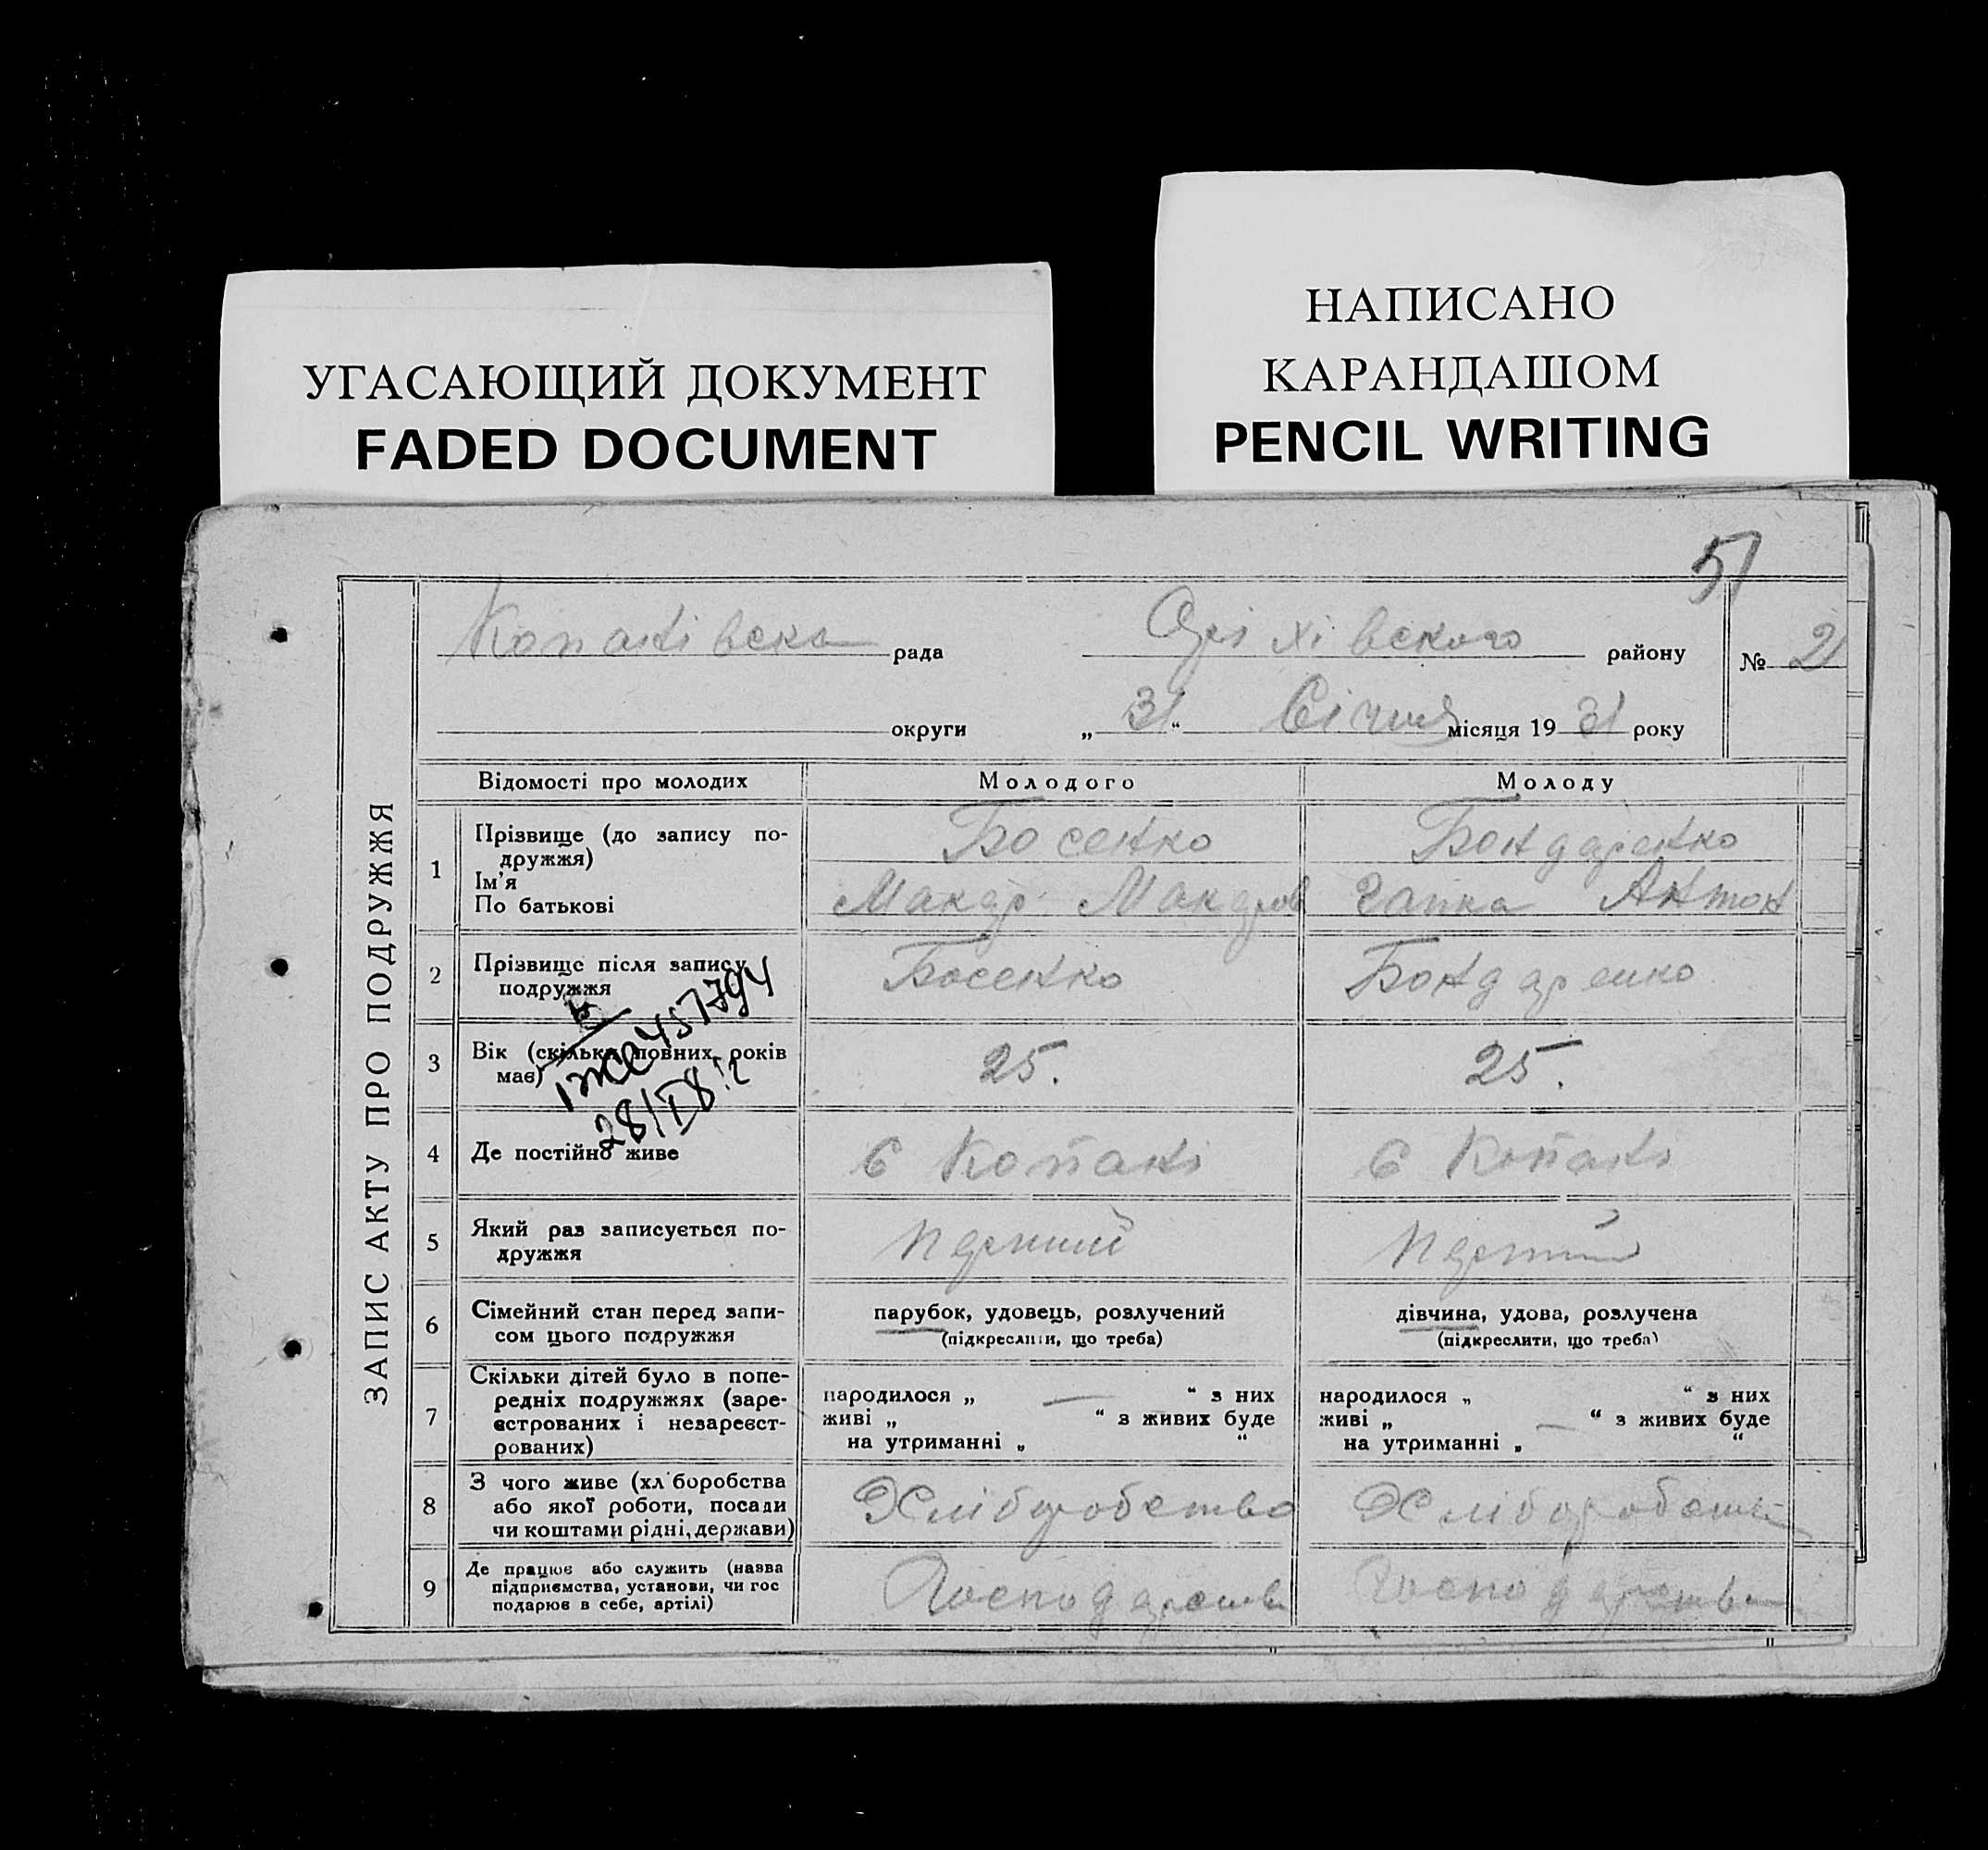 УГАСАЮЩИЙ ДОКУМЕНТ
FADED DOCUMENT
НАПИСАНО
КАРАНДАШОМ
PENCIL WRITING
51
ЗАПИС АКТУ ПРО ПОДРУЖЖЯ
Копанівська рада Оріхівского району № 2
округи „ 31 “ Січня місяця 19 31 року
Відомості про молодих Молодого Молоду
1 Прізвище (до запису по-
дружжя)
Ім'я
По батькові
Босенко Бондаренко
Макар Макаров Гапка Антон
2 Прізвище після запису
подружжя
Босенко Бондаренко
3 Вік (скільки повних років
має)
25. 25.
4 Де постійно живе
с Копані с Копані
5 Який раз записується по-
дружжя
перший перший
6 Сімейний стан перед запи-
сом цього подружжя
парубок, удовець, розлучений
(підкреслити, що треба)
дівчина, удова, розлучена
(підкреслити, що треба)
7 Скільки дітей було в попе-
редніх подружжях (заре-
єстрованих і незареєст-
рованих)
народилося „ — “ з них
живі „ “ з живих буде
на утриманні „ “
народилося „ “ з них
живі „ — “ з живих буде
на утриманні „ “
8 З чого живе (хліборобства
або якої роботи, посади
чи коштами рідні, держави)
Хліборобство Хліборобств
9 Де працює або служить (назва
підприємства, установи, чи гос
подарює в себе, артілі)
Господарств Господарств